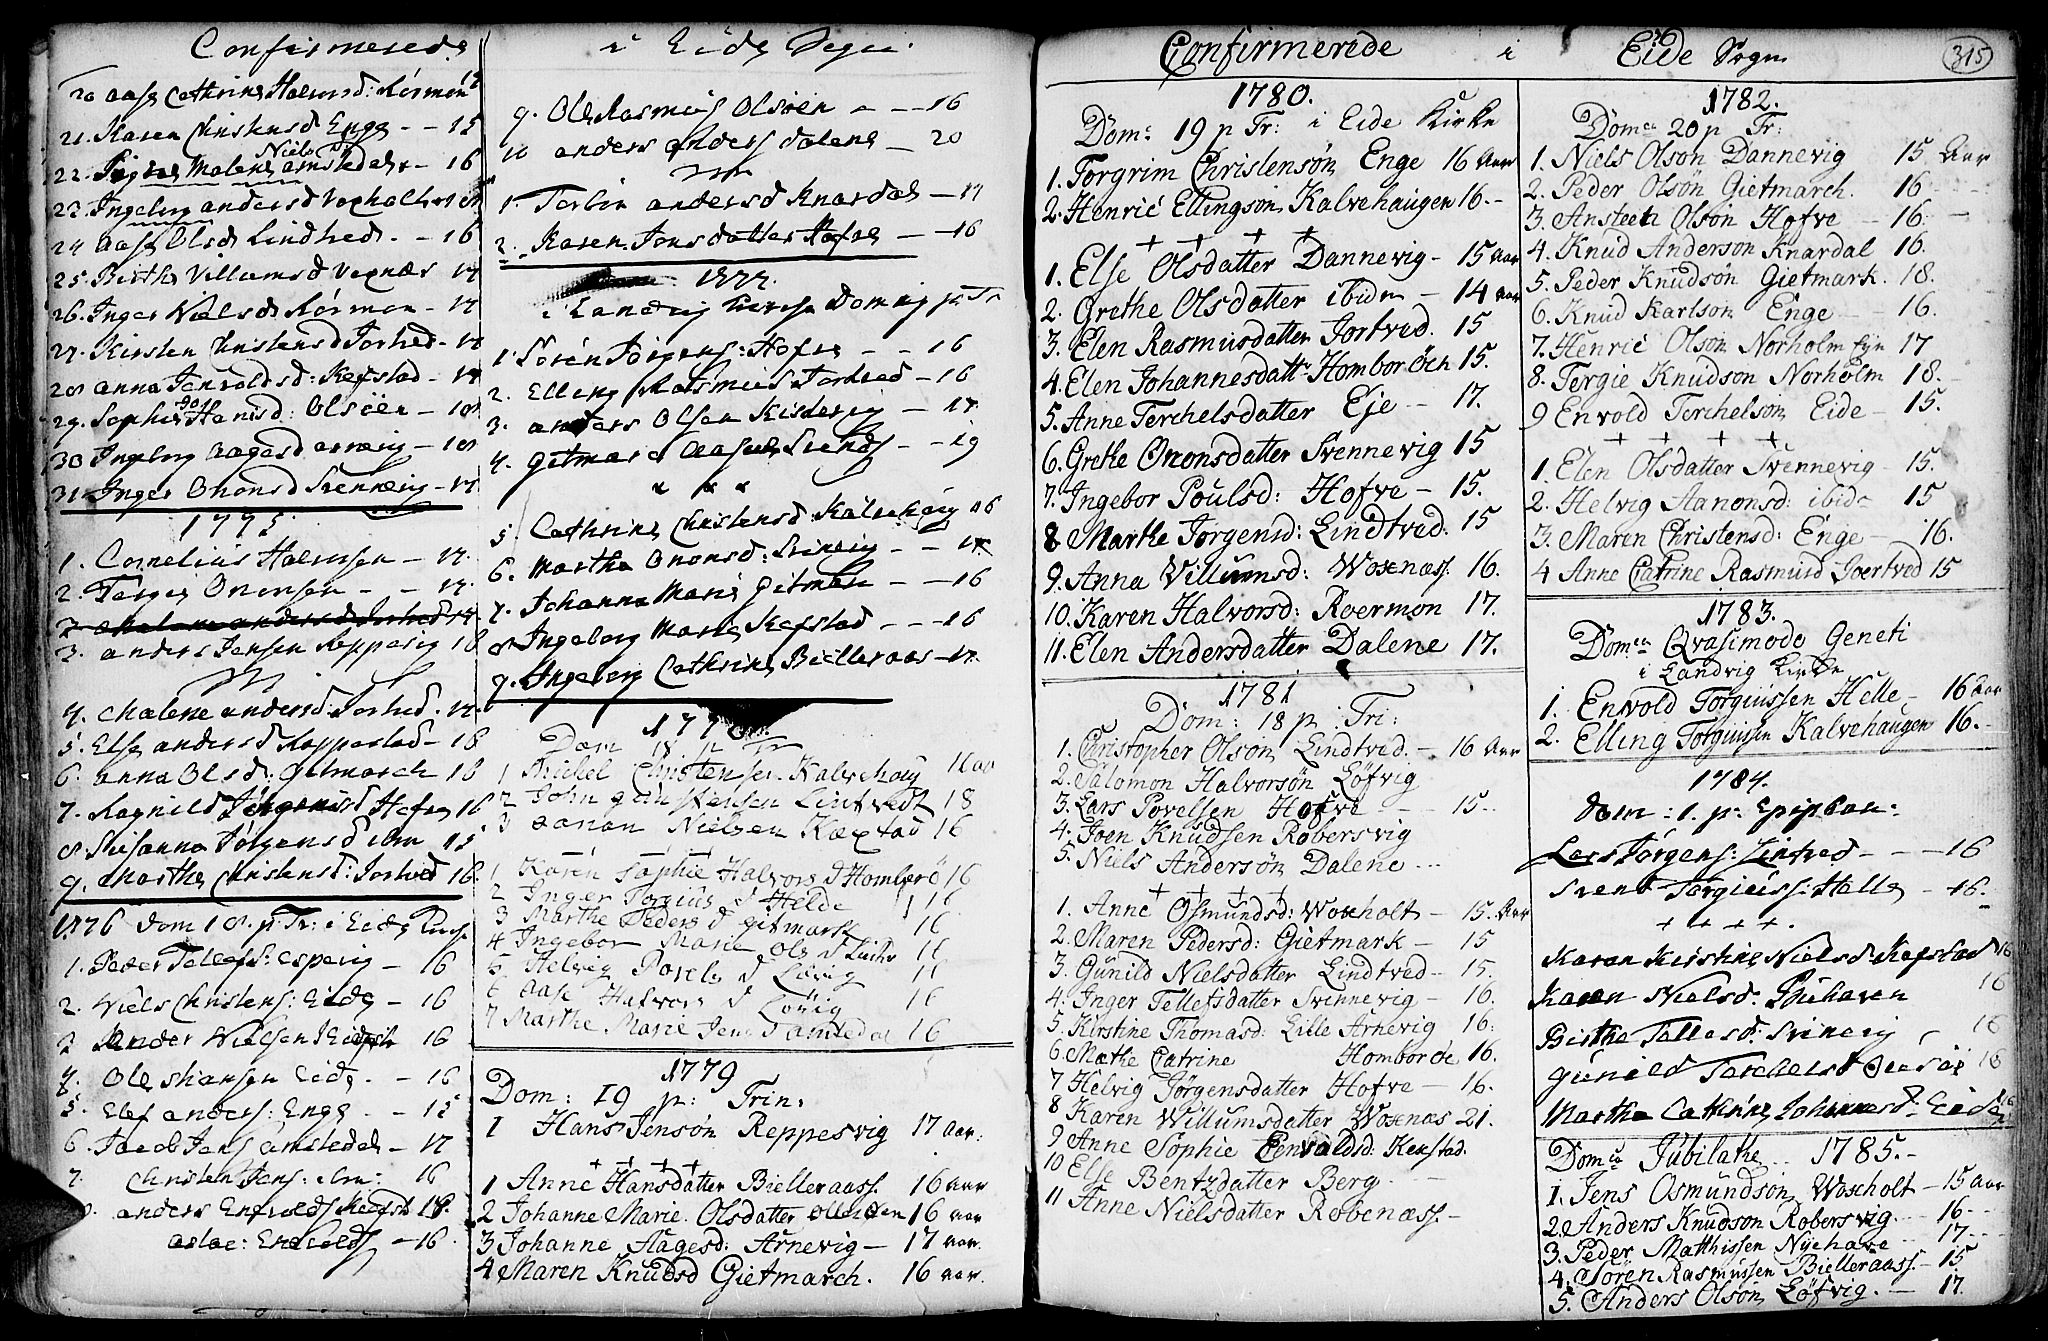 Confirmerede i Eide Sogn.
20 aase Cathrine Halvorsd: Rörmon 17
21. Karen Christensd Enge - - 15
Niels
22. Malene amstedal - 16
23. Ingeborg andersd Voxholt
24 aase Olsd Lindtved. - 16
25. Birthe Villumsd Voxnæs 17
26. Inger Nielsd Rörmon - 17
27. Kirsten Christensd Jortved - 17
28 anna Jenvoldsd: Kefstad - 17
29. Sophie Hansd: Olsöen - 18
30 Ingeborg Aagesd arnevig - 18
31. Inger Ononsd Svennevig - 17
1775
1. Cornelius Halvorsen - 17.
2. Tergie Ononsen - - 17.
3 Malene andersd Jortved 17
3. anders Jensen Reppesvig 18
4. Malene andersd: Jortved. 17.
5. Else andersd Reppestad - 18
6. anna Olsd: Gitmarck 18
7. Ragnild Jörgensd Hofve 16
8. Susanna Jörgensd ibm 15
9. Marthe Christensd: Jortved 16.
1776 Dom 18. p Tr: i Eide Kirke
1. Peder Tellefs: Espevig - 16
2. Niels Christens: Eide - 16
3 Peder Nielsen 16
4. Ole Hansen Eide. - 16
5. Elef anders: Enge. - 15
6. Jacob Jens amstedal - 17
7. Christen Jens: ibm: 16
8. anders Envolds Kefstad 18.
aslac: Envolds - 16.
9. Ole Rasmus Olsöen - - 16
10 anders anders dalene - 20
1 Torbör andersd Knardal - 17
2. Karen Jonsdatter Hofve - 16
1777.
i Landvig Kirke Dom p Tr
1. Sören Jörgens: Hofve - - 16
2. Elling Rasmus Jortved - 16
3. anders Olsen Kistevig - 17.
4. Gitmarck Aasul Svends - - 19
5 Cathrine Christensd Kalvehaug 16
6. Marthe Ononsd: Svinevig - - 17
7. Johanna Marie Gitmarck - - 16
8 Ingeborg Marie Kefstad - - - 16
9. Ingeborg Cathrine Bielleraas - 17.
1778.
Dom 18 p Tr
1 Michel Christensen Kalvehoug 16 aar
2 John gunstensen Lintvedt 18
3 aanon Nielsen Kæxstad 16
1 Karen Sophie Halvors d Homborö 16
2 Inger Torgius d Helde 16
3 Marthe Peders d gitmark 16
4 Ingebor Marie Ols d Lintv 16
5 Helvig Povels d Lövig 16
6 Aase Halvors d Lövig 16
7 Marthe Marie Jens d amstedal 16
1779
Dom: 19 p: Trin:
1 Hans Jensön Reppesvig 17 aar:
+ + + +
1 Anne Hansdatter Bielleraass. 16 aar
2 Johanne Marie. Olsdatter 16 aar
3 Johanne Aagesd: Arnevig - 17 aar.
4 Maren Knudsd Gietmarch. 16 aar.
Confirmerede i Eide Sogn
315
1780.
Domc 19 p Tr: i Eide Kirke
1. Torgrim Christensön Enge 16 Aar
2. Henric Ellingson Kalvehaugen 16. -
+ + + +
1. Else Olsdatter Dannevig - 15 aar
2. Grethe Olsdatter ibidm - 14 aar
3. Elen Rasmusdatter Jortved. 15
4. Elen Johannesdattr Homboröen 15.
5. Anne Terchelsdatter Eje - 17.
6. Grethe Ononsdatter Svennevig 15
7. Ingebor Poulsd: Hofve - 15.
8 Marthe Jörgensd: Lindtved: 15
9. Anna Villumsd: Woxnæss. 16.
10. Karen Halvorsd: Roermon 17.
11. Elen Andersdatter Dalene 17.
1781
Dom: 18 p Tri:
1. Christopher Olsön Lindtvid. - 16 Aar
2. Salomon Halvorsön Löfvig
3. Lars Povelsen Hofve - - 15..
4. Joen Knudsen Robersvig
5. Niels Andersön Dalene ...
+ + + +
1. Anne Osmundsd: Woxholt - 15. Aar
2. Maren Pedersd: Gietmark - 15
3. Gunild Nielsdatter Lindtved - 15.
4. Inger Tellefsdatter Svennevig - 16.
5. Kirstine Thomasd: Lille Arnevig 16:
6. Mathe Catrine Homboröe 16.
7 Helvig Jörgensdatter Hofve - 16.
8 Karen Willumsdatter Woxnæs 21.
9 Anne Sophie Envoldsd: Kexstad.
10 Else Bentzdatter Berg. -
11 Anne Nielsdatter Robenæss. -
1782.
Domca 20 p Tr:
1. Niels Olson Dannevig 15 Aar
2. Peder Olsön Gietmarch. 16 - -
3. Ansteen Olsön Hofve - 16. -
4. Knud Anderson Knardal 16.
5. Peder Knudsön Gietmark. 18.
6. Knud Karlson Enge - - 16.
7. Henric Olson Norholm 17
8. Tergie Knudson Norholm 18.
9 Envold Torchelson Eide - 15.
+ + + +
1. Elen Olsdatter Svennevig - 15.
2. Helvig Aanonsd: ibide 15
3. Maren Christensd: Enge - 16.
4 Anne Catrine Rasmusd Joertved 15
1783.
Domca Qvasimodo Geneti
i Landvig Kirke
1. Envold Torgiussen Helle - 16 Aar
2. Elling Torgiussen Kalvehaugen 16. -
1784.
dom: 1. p: Epiphan:
Lars Jörgens: Lintved - - - 16
Svend Torgiuss: Helle - 16.
+ + + +.
Karen Kirstine Nielsd Kefstad 16
Karen Nielsd: Buehaven 16
Birthe Tellefsd: Svinevig 16
Gunild Terchelsd 16
Marthe Cathrine Johannesd: Eide 16
Domca Jubilathe 1785. -
1. Jens Osmundson Woxholt - 15 aar
2. Anders Knudson Robersvig - 16 -
3. Peder Matthissen Nyehave - 17 -
4. Sören Rasmussen Bielleraass. - 15
5. Anders Olson Löfvig. - 17.